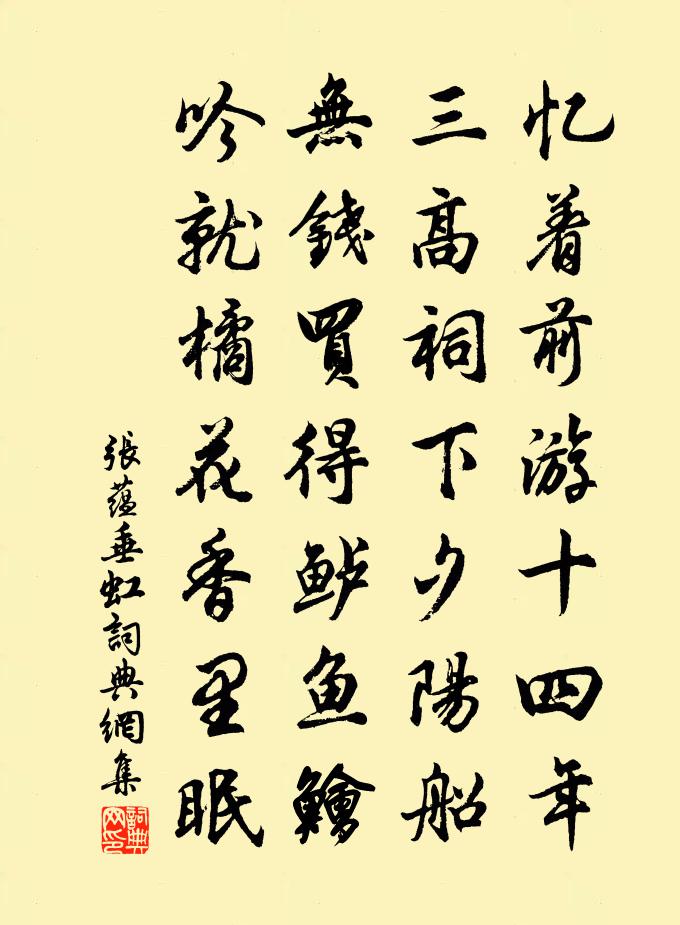 忆着前游十四年
三高祠下夕陽船
無錢買得鲈鱼鱠
吟就橘花香里眠
張蕴垂虹詞典網集
詞典網印